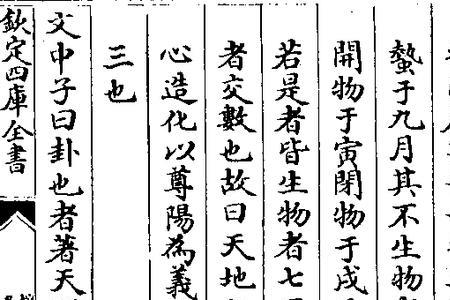 蟄于九月其不生物
開物于寅閉物于戌
若是者皆生物者七
者交數也故曰天地
心造化以尊陽為義
三也
文中子曰卦也者著天
欽定四庫全書